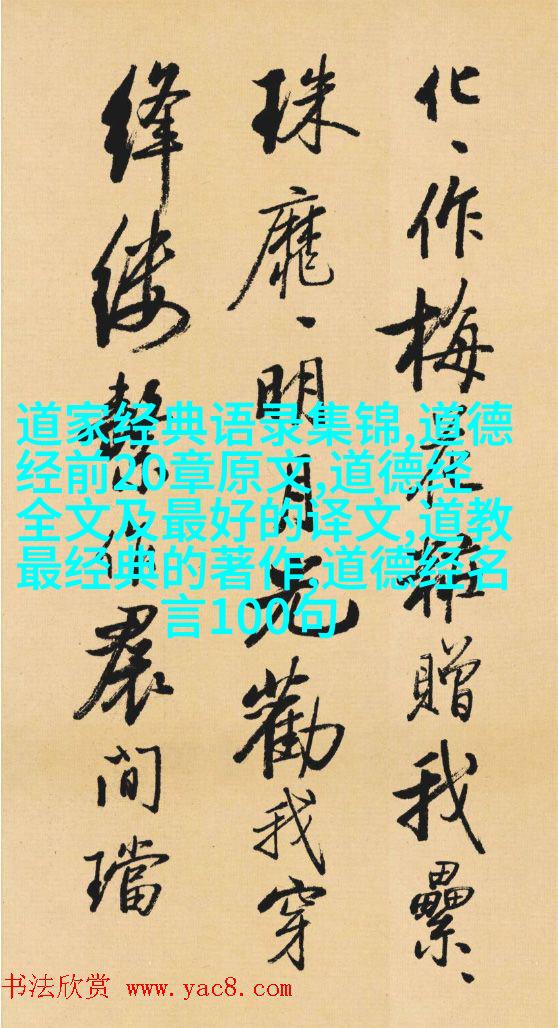 化、作梅花贈我纍、
珠靡、明月光勸我穿
絳縷繫作裙間璫
道家经典语录集锦,道德
经前20章原文,道德经
全文及最好的译文,道教
最经典的著作,道德经名
言100句
书法欣赏 www.yac8.com